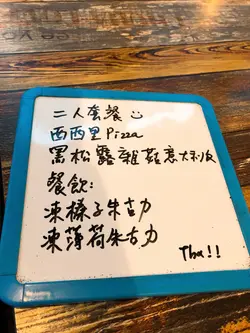 二人套餐☺
西西里Pizza
黑松露雜菇意大利飯
餐飲:
凍榛子朱古力
凍薄荷朱古力
Thx!!